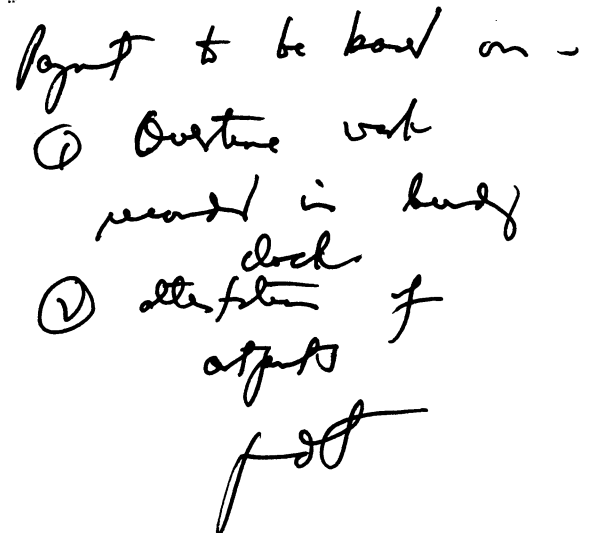 Payment to be based on -
① Overtime work
recorded in bundy
clock
② attestation of
outputs